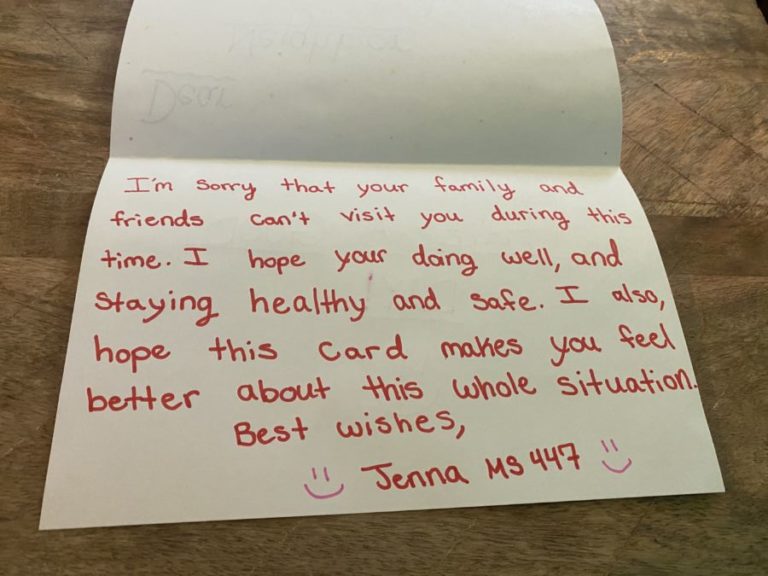 Dear
Neighbor
I'm sorry that your family and
friends can't visit you during this
time. I hope your doing well, and
staying healthy and safe. I also,
hope this card makes you feel
better about this whole situation.
Best wishes,
Jenna MS 447